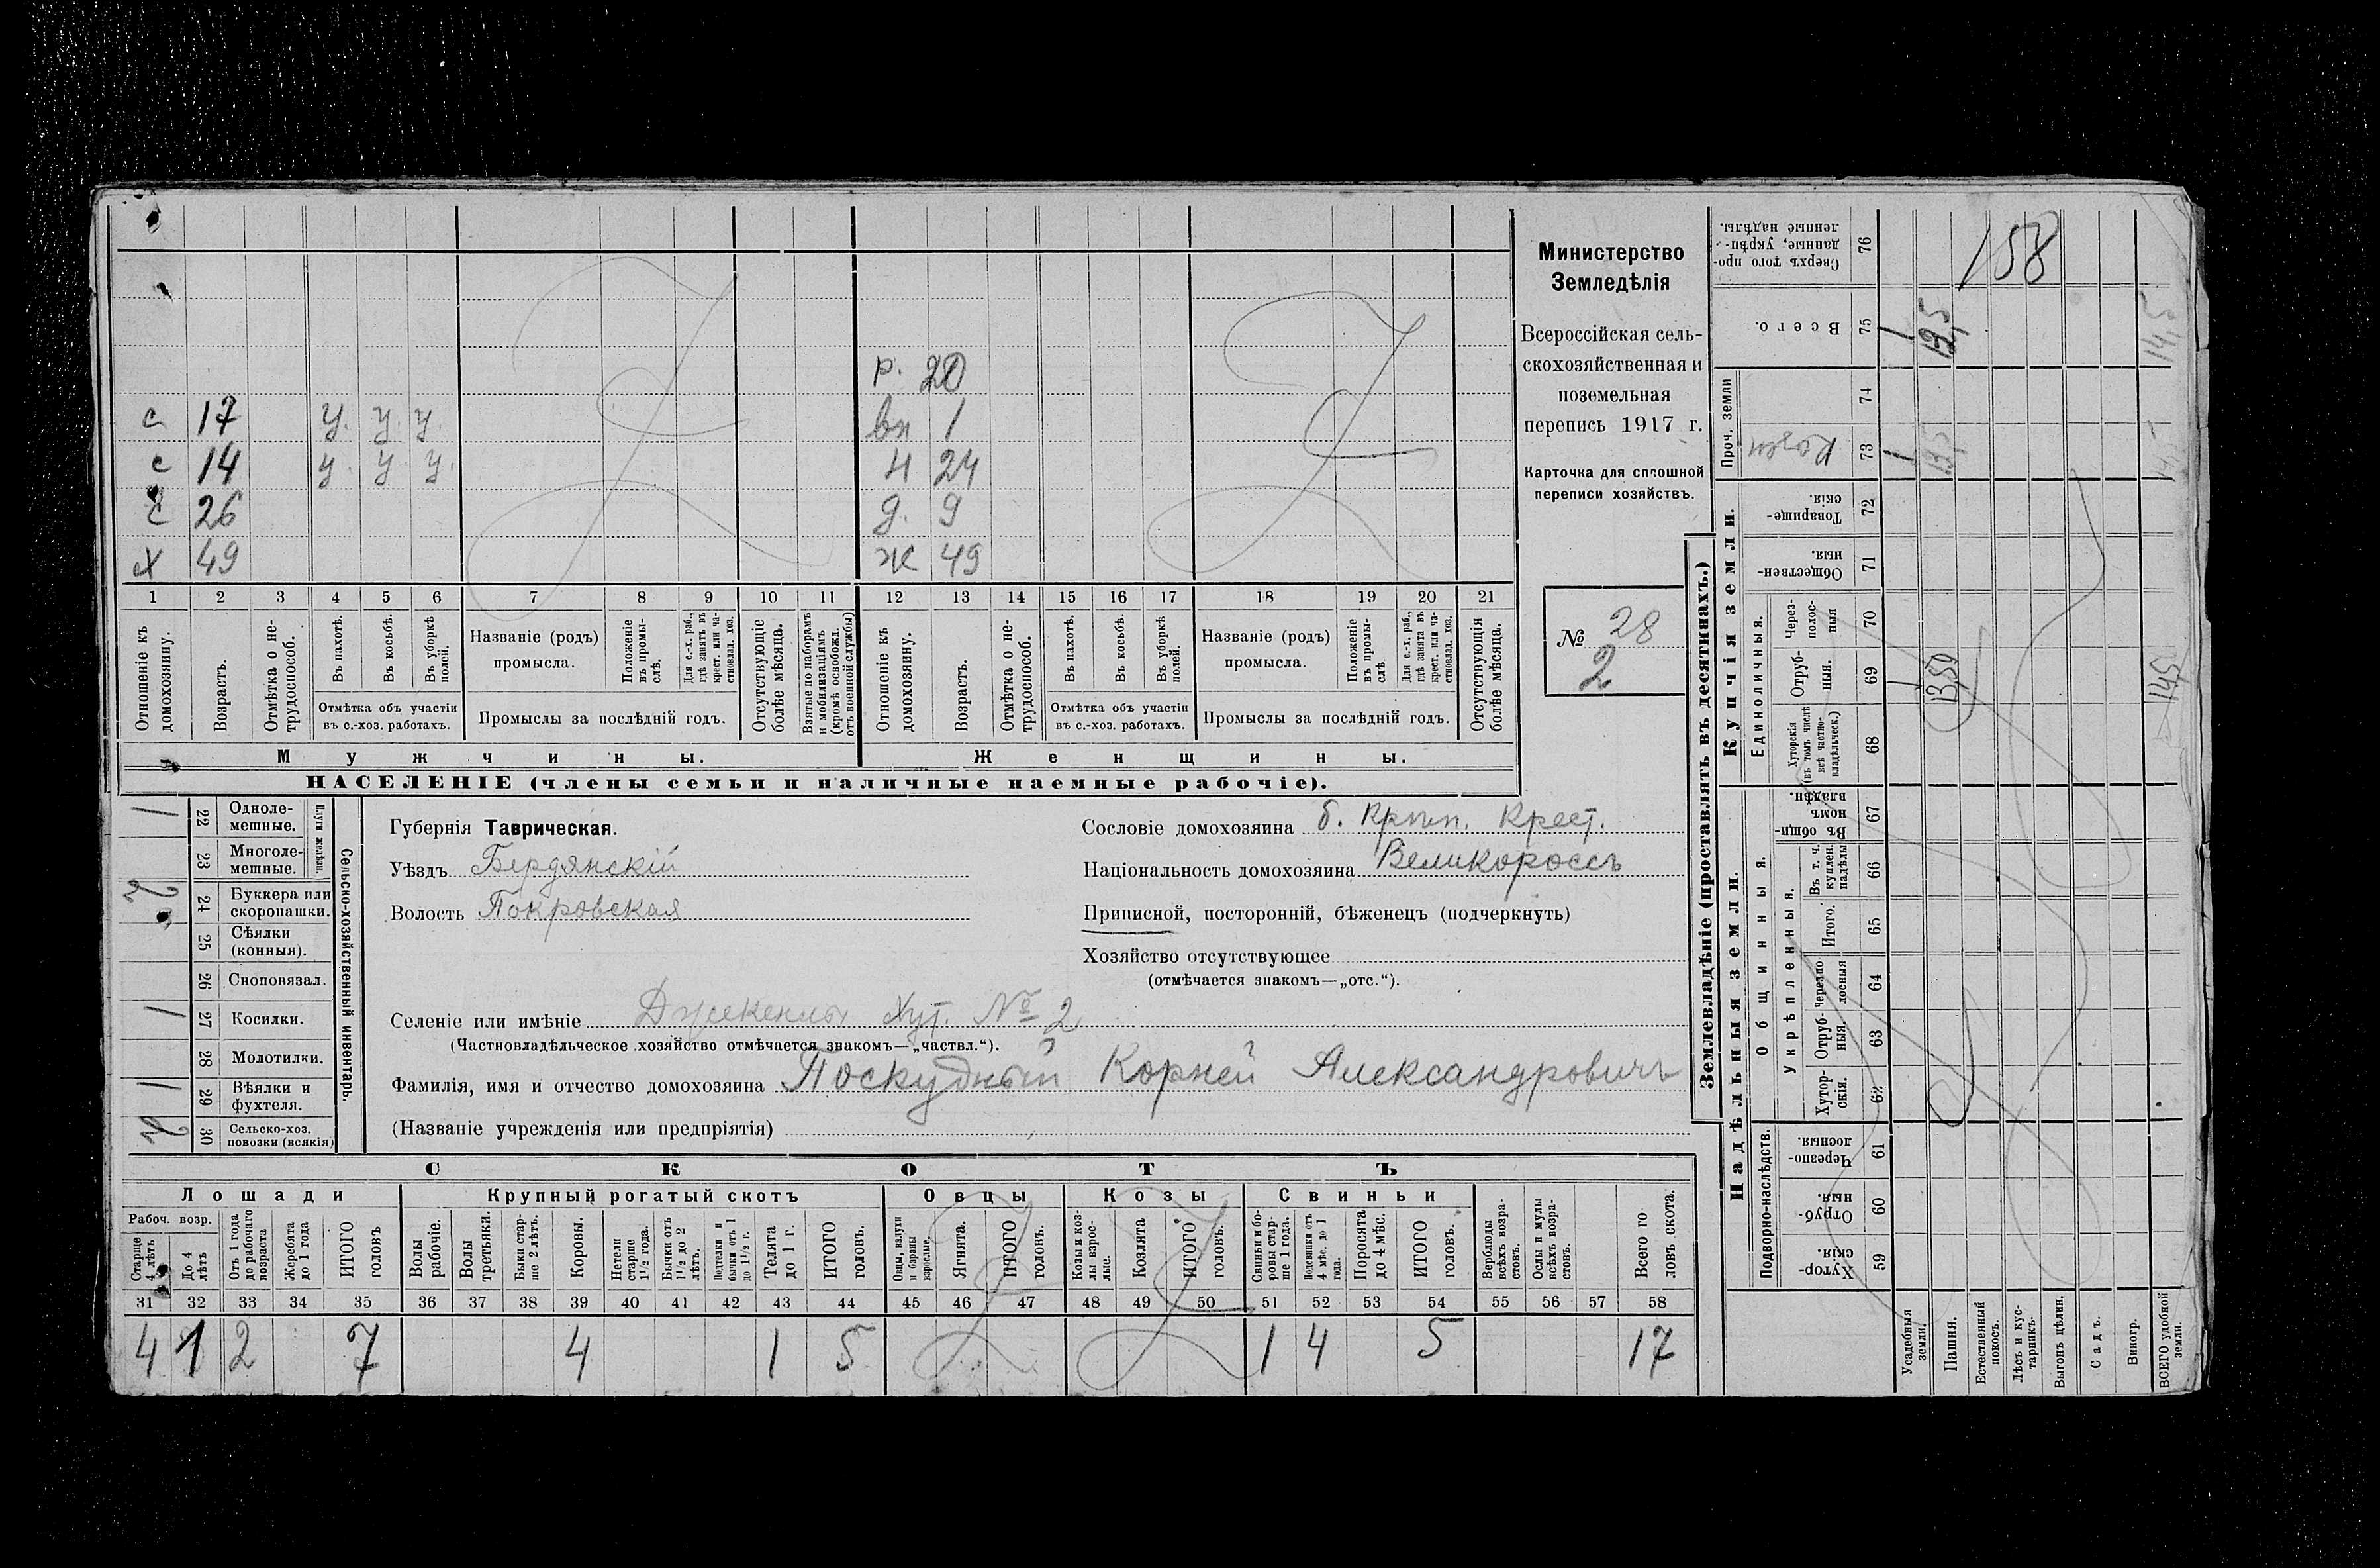 р. 20
с 17 у. у. у. вн 1
с 14 у. у. у. н 24
с 26 д. 9
х 49 ж 49
1 2 3 4 5 6 7 8 9 10 11 12 13 14 15 16 17 18 19 20 21
Отношеніе къ домохозяину.
Возрастъ.
Отмѣтка о не-
трудоспособ.
Въ пахотѣ.
Въ косьбѣ.
Въ уборкѣ полей.
Отмѣтка объ участіи
въ с.-хоз. работахъ.
Названіе (родъ)
промысла.
Положеніе
въ промы-
слѣ.
Для с.-х. раб.,
гдѣ занятъ въ
крест. или ча-
стновлад. хоз.
Промыслы за послѣдній годъ.
Отсутствующіе
болѣе мѣсяца.
Взятые по наборамъ
и мобилизаціямъ
(кромѣ освобожд.
отъ военной службы)
Отношеніе къ
домохозяину.
Возрастъ.
Отмѣтка о не-
трудоспособ.
Въ пахотѣ.
Въ косьбѣ.
Въ уборкѣ
полей.
Отмѣтка объ участіи
въ с.-хоз. работахъ.
Названіе (родъ)
промысла.
Положеніе
въ промы-
слѣ.
Для с.-х. раб.,
гдѣ занята въ
крест. или ча-
стновлад. хоз.
Промыслы за послѣдній годъ.
Отсутствующія
болѣе мѣсяца.
Мужчины. Женщины.
НАСЕЛЕНІЕ (члены семьи и наличные наемные рабочіе).
Министерство
Земледѣлія
Всероссійская сель-
скохозяйственная и
поземельная
перепись 1917 г.
Карточка для сплошной
переписи хозяйствъ.
№ 28
2
Сельско-хозяйственный инвентарь.
Плуги желѣзн.
1 22 Одноле-
мешные.
23 Многоле-
мешные.
2 24 Буккера или
скоропашки.
25 Сѣялки
(конныя).
26 Сноповязал.
1 27 Косилки.
28 Молотилки.
1 29 Вѣялки и
фухтеля.
2 30 Сельско-хоз.
повозки (всякія)
Губернія Таврическая.
Уѣздъ Бердянскій
Волость Покровская
Сословіе домохозяина б. Крѣп. Крест.
Національность домохозяина Великороссъ
Приписной, посторонній, бѣженецъ (подчеркнуть)
Хозяйство отсутствующее
(отмѣчается знакомъ—„отс.“).
Селеніе или имѣніе Джекенлы Хут. № 2
(Частновладѣльческое хозяйство отмѣчается знакомъ—„частвл.“).
Фамилія, имя и отчество домохозяина Поскудный Корней Александровичъ
(Названіе учрежденія или предпріятія)
СКОТЪ
Лошади Крупный рогатый скотъ Овцы Козы Свиньи
Рабоч. возр.
Старше
4 лѣтъ
До 4
лѣтъ
Отъ 1 года
до рабочаго
возраста
Жеребята
до 1 года
ИТОГО
головъ
Волы
рабочіе.
Волы
третьяки.
Быки стар-
ше 2 лѣтъ.
Коровы.
Нетели
старше
1½ года.
Бычки отъ
1½ до 2
лѣтъ.
Подтелки и
бычки отъ 1
до 1½ г.
Телята
до 1 г.
ИТОГО
головъ.
Овцы, валухи
и бараны
взрослые.
Ягнята.
ИТОГО
головъ.
Козы и коз-
лы взрос-
лые.
Козлята
ИТОГО
головъ.
Свиньи и бо-
ровы стар-
ше 1 года.
Подсвинки отъ
4 мѣс. до 1
года.
Поросята
до 4 мѣс.
ИТОГО
головъ.
Верблюды
всѣхъ возра-
стовъ.
Ослы и мулы
всѣхъ возра-
стовъ.
Всего го
ловъ скота.
31 32 33 34 35 36 37 38 39 40 41 42 43 44 45 46 47 48 49 50 51 52 53 54 55 56 57 58
4 1 2 7 4 1 5 1 4 5 17
Землевладѣніе (проставлять въ десятинахъ.)
Сверхъ того про-
данные, укрѣп-
ленные надѣлы.
76
158
Всего.
75
1 13,5 14,5
Проч. земли
74
73
1 13,5 14,5
Купчія земли.
Товарище-
скія.
72
Обществен-
ныя.
71
Единоличныя.
Через-
полос-
ныя
70
Отруб-
ныя.
69
1 13,50 14,5
Хуторскія
(въ томъ числѣ
всѣ частно-
владѣльческ.)
68
Надѣльныя земли.
Общинныя.
Въ общи-
номъ
владѣн.
67
Укрѣпленныя.
Въ т. ч.
куплен.
надѣлы
66
Итого.
65
Черезпо
лосныя
64
Отруб-
ныя.
63
Хутор-
скія.
62
Подворно-наслѣдств.
Черезпо-
лосныя.
61
Отруб-
ныя.
60
Хутор-
скія.
59
Усадебныя
земли.
Пашня.
Естественный
покосъ.
Лѣсъ и кус-
тарникъ.
Выгонъ цѣлин.
Садъ.
Виногр.
ВСЕГО удобной
земли.